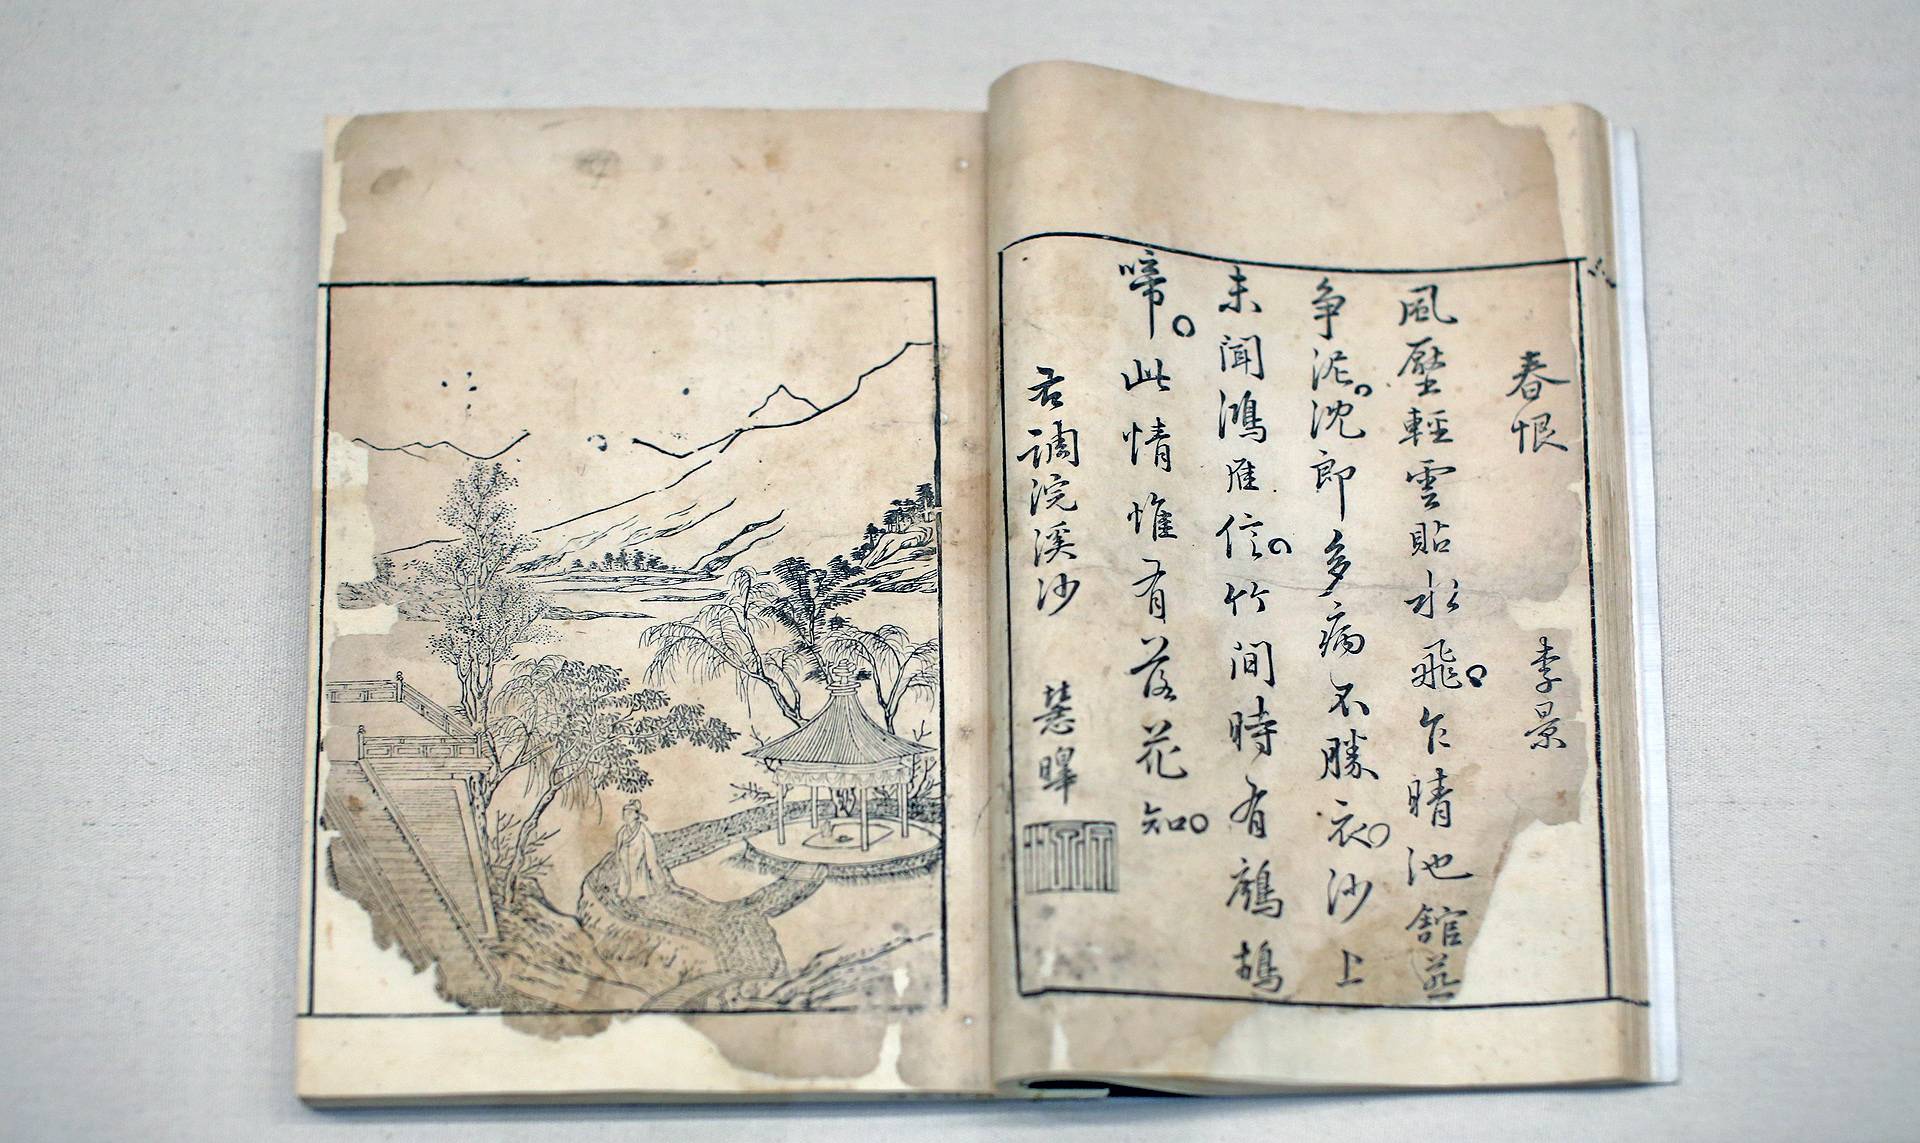 春恨 李景
風壓輕雲貼水飛。乍晴池館燕
争泥。沈郎多病不勝衣。沙上
未聞鴻雁信。竹間時有鷓鴣
啼。此情惟有落花知。
右調浣溪沙 慧